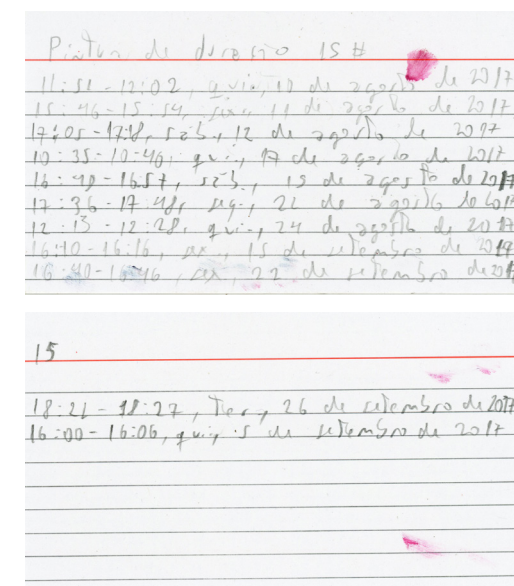 Pintura de duração 15 #
11:51 - 12:02, quin, 10 de agosto de 2017
15:46 - 15:54, sex, 11 de agosto de 2017
17:05 - 17:18, sáb, 12 de agosto de 2017
10:35 - 10:46, qui, 17 de agosto de 2017
16:49 - 16:57, sáb, 19 de agosto de 2017
17:36 - 17:48, seg, 21 de agosto de 2017
12:15 - 12:28, qui, 24 de agosto de 2017
16:10 - 16:16, sex, 15 de setembro de 2017
16:40 - 16:46, sex, 22 de setembro de 201
15
18:21 - 18:27, Ter, 26 de setembro de 2017
16:00 - 16:06, qui, 5 de setembro de 2017